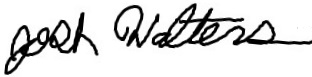 Josh Walters